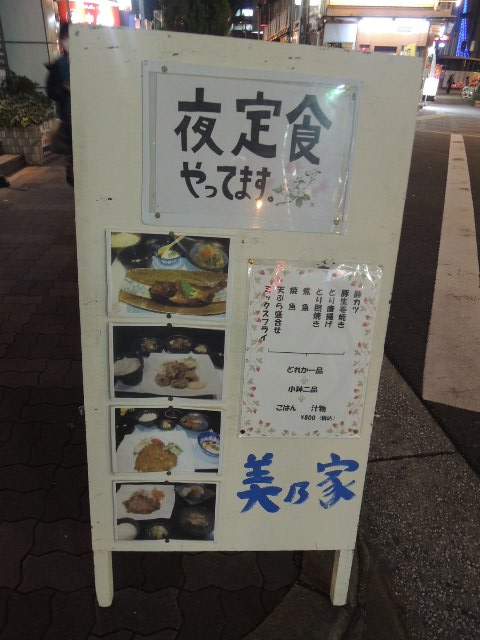 夜定食
やってます。
豚カツ
豚生姜焼き
とり唐揚げ
とり照焼き
煮魚
焼魚
天ぷら盛合せ
ミックスフライ
どれか一品
小鉢二品
ごはん 汁物
¥800(税込)
美乃家